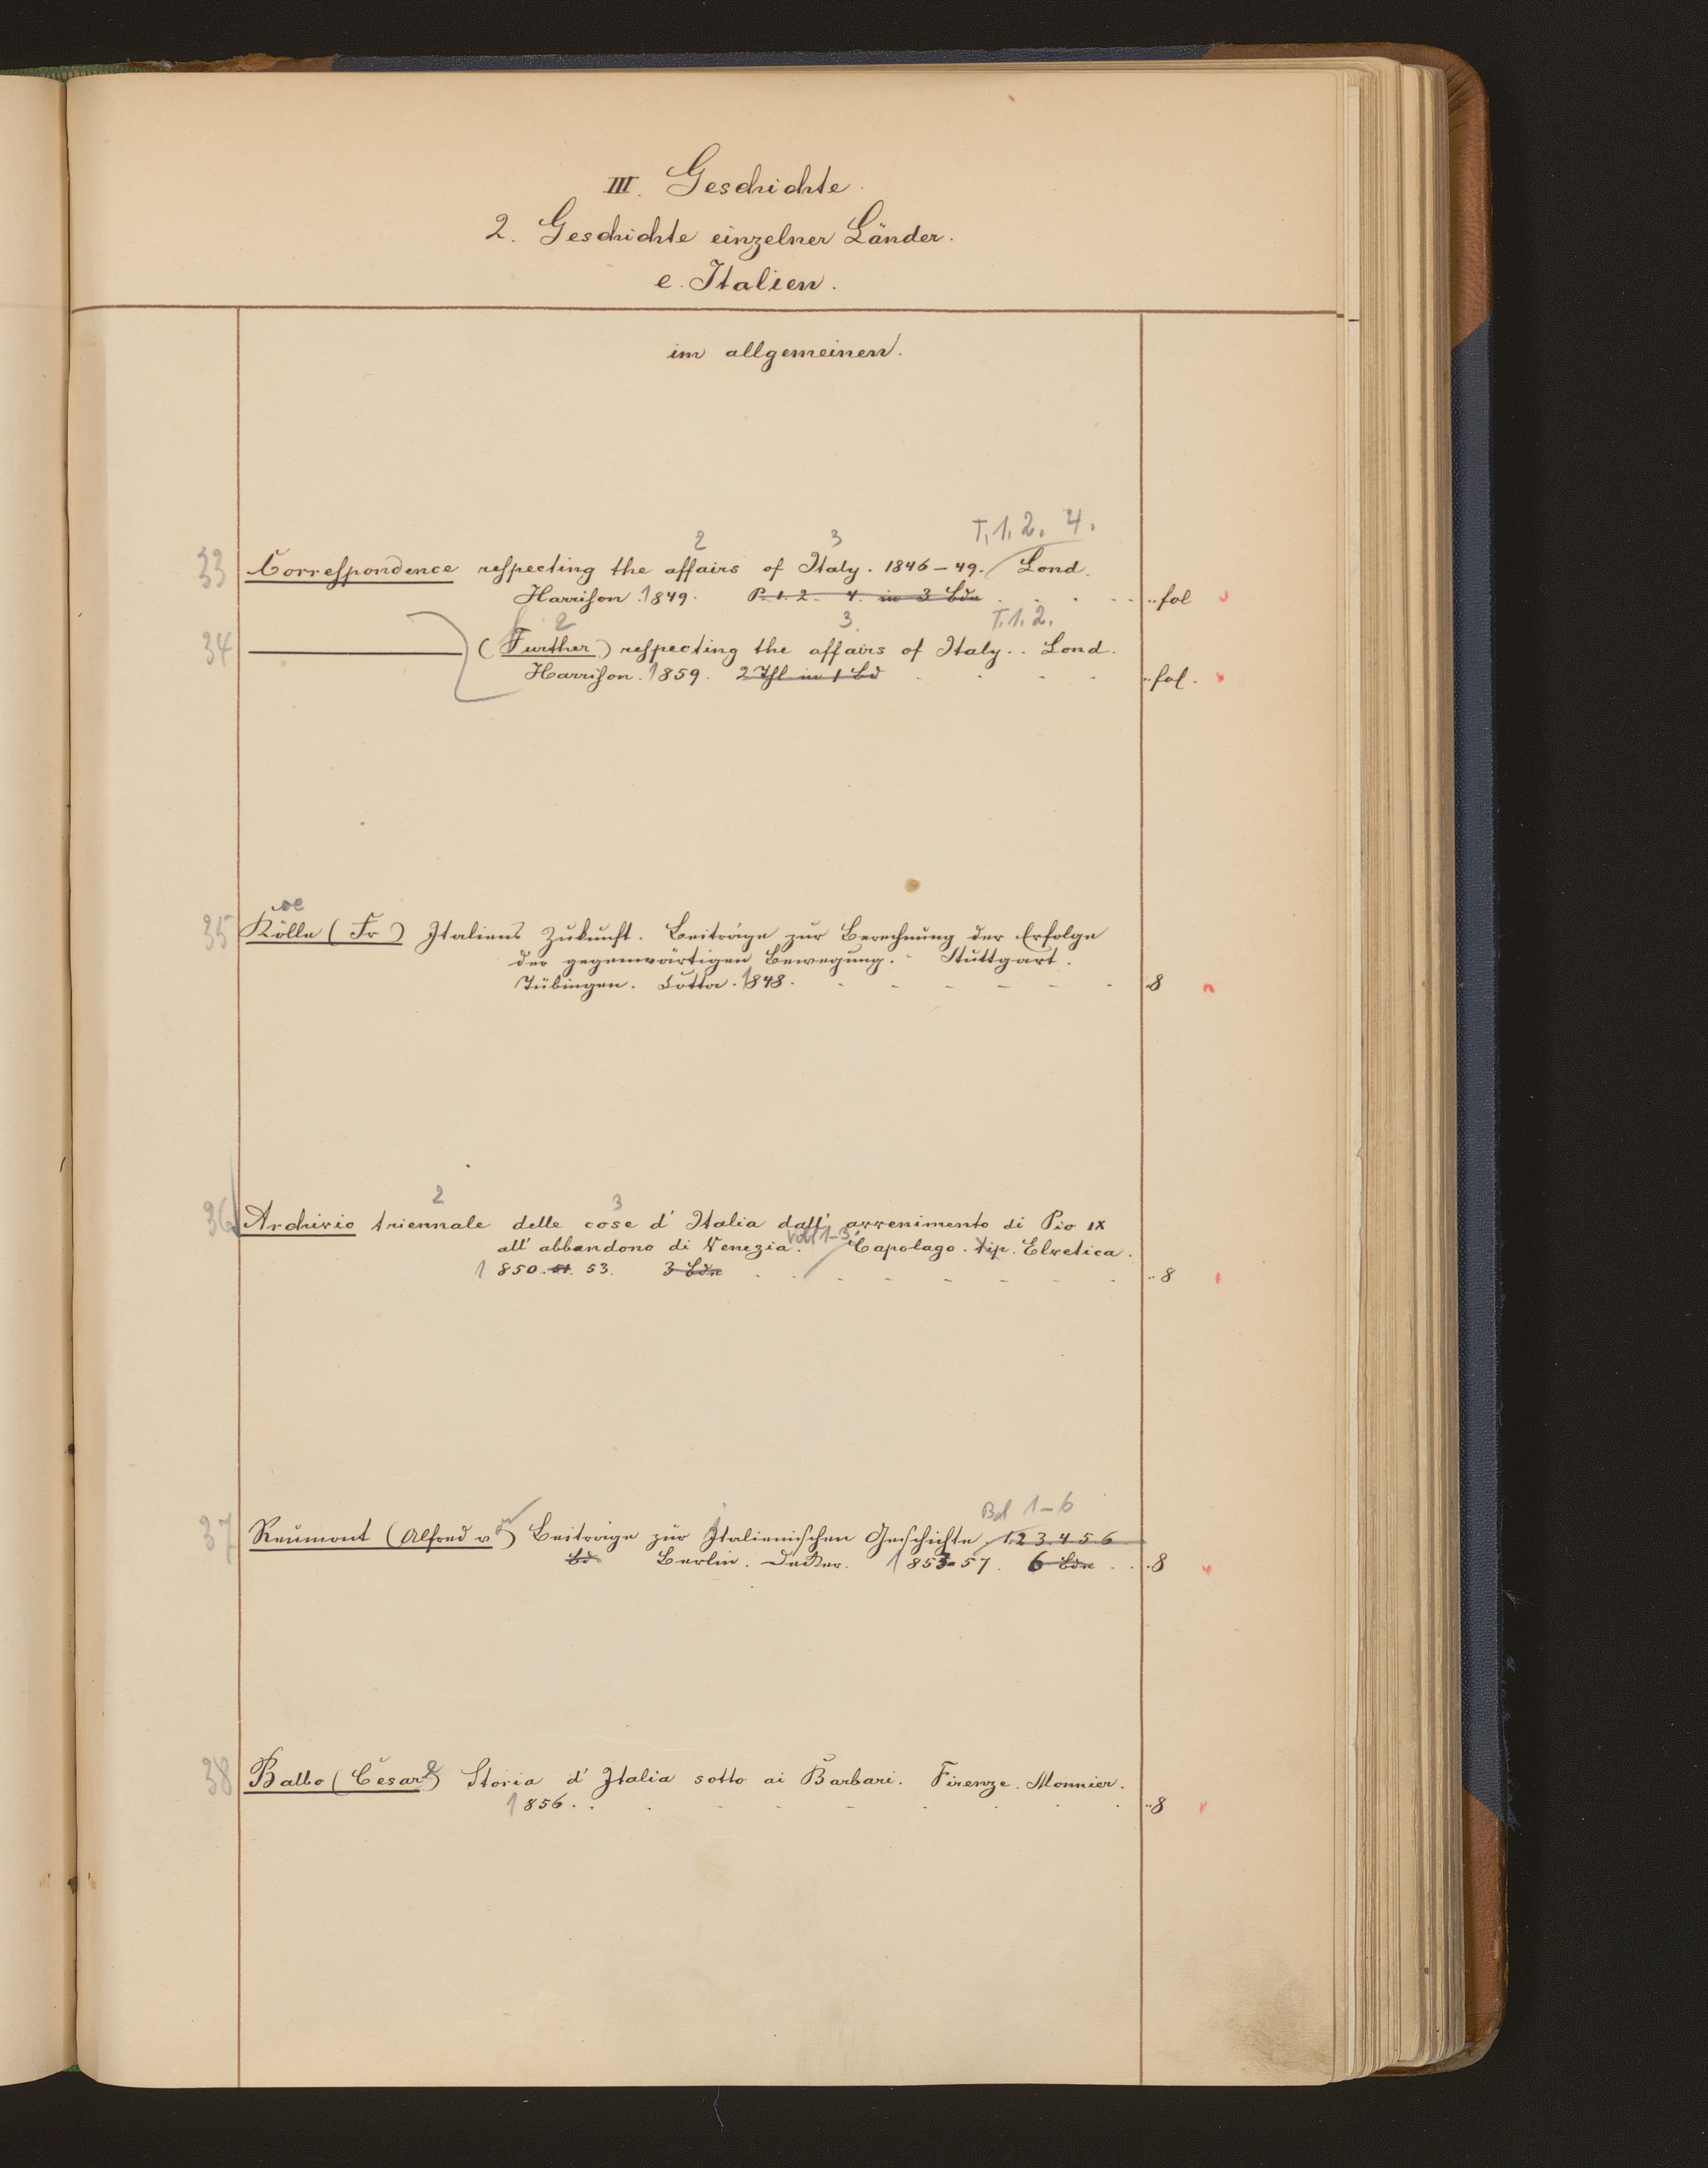 III. Geschichte.
2. Geschichte einzelner Länder.
e. Italien.
im allgemeinen.
T. 1. 2. 4.
2 3
33 Correspondence respecting the affairs of Italy. 1846-49. Lond.
Harrison. 1849. P. 1. 2. 4. in 3 Bdn .. fol
2 3 T. 1. 2.
34 ——— (Further) respecting the affairs of Italy.. Lond.
Harrison. 1859. 2 Thl in 1 Bd .. fol.
oe
35 Kölle (Fr) Italiens Zukunft. Beiträge zur Berechnung der Erfolge
der gegenwärtigen Bewegung. - Stuttgart.
Tübingen. Cotta. 1848. 8
2 3
36 Archivio triennale delle cose d' Italia dall' avvenimento di Pio IX
vol 1-3.
all' abbandono di Venezia. Capolago. tip. Elvetica.
1850. 51. 53. 3 Bdn .. 8
Bd 1-6
37 Reumont (Alfred v) Beiträge zur Italienischen Geschichte. 1. 2 3. 4 5 6
Bd Berlin. Decker. 1853-57. 6 Bdn .. 8
38 Balbo (Cesare) Storia d' Italia sotto ai Barbari. Firenze. Monnier.
1856. .. 8